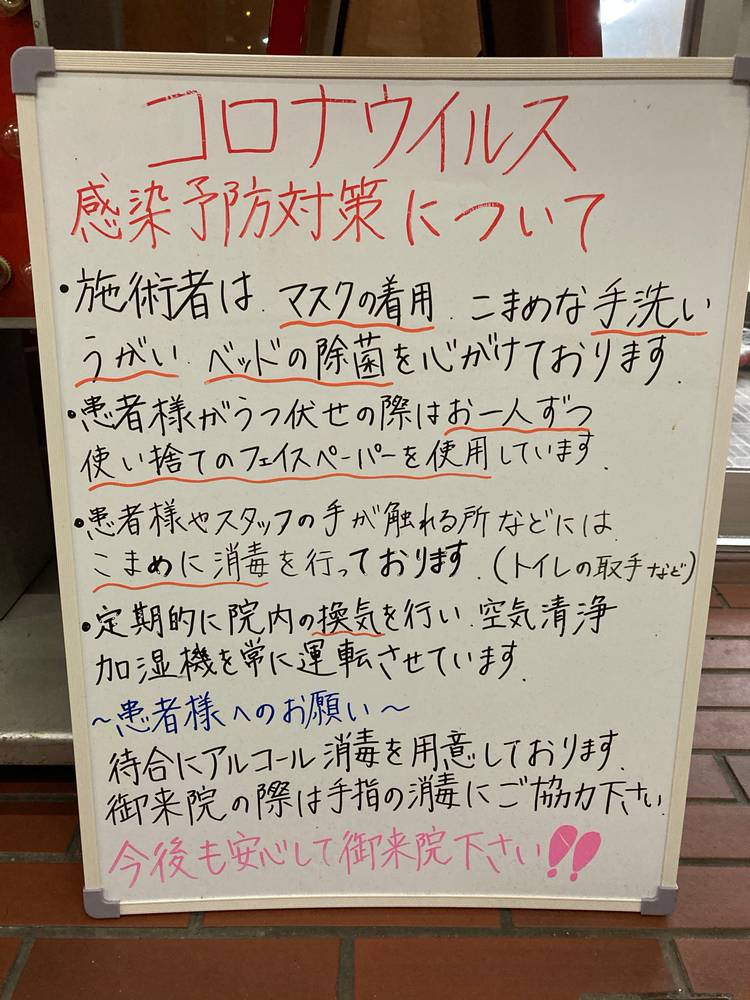 コロナウイルス
感染予防対策について
・施術者は、マスクの着用、こまめな手洗い
うがい、ベッドの除菌を心がけております。
・患者様がうつ伏せの際はお一人ずつ
使い捨てのフェイスペーパーを使用しています。
・患者様やスタッフの手が触れる所などには
こまめに消毒を行っております。(トイレの取手など)
・定期的に院内の換気を行い、空気清浄
加湿機を常に運転させています。
〜患者様へのお願い〜
待合にアルコール消毒を用意しております。
御来院の際は手指の消毒にご協力下さい。
今後も安心して御来院下さい!!